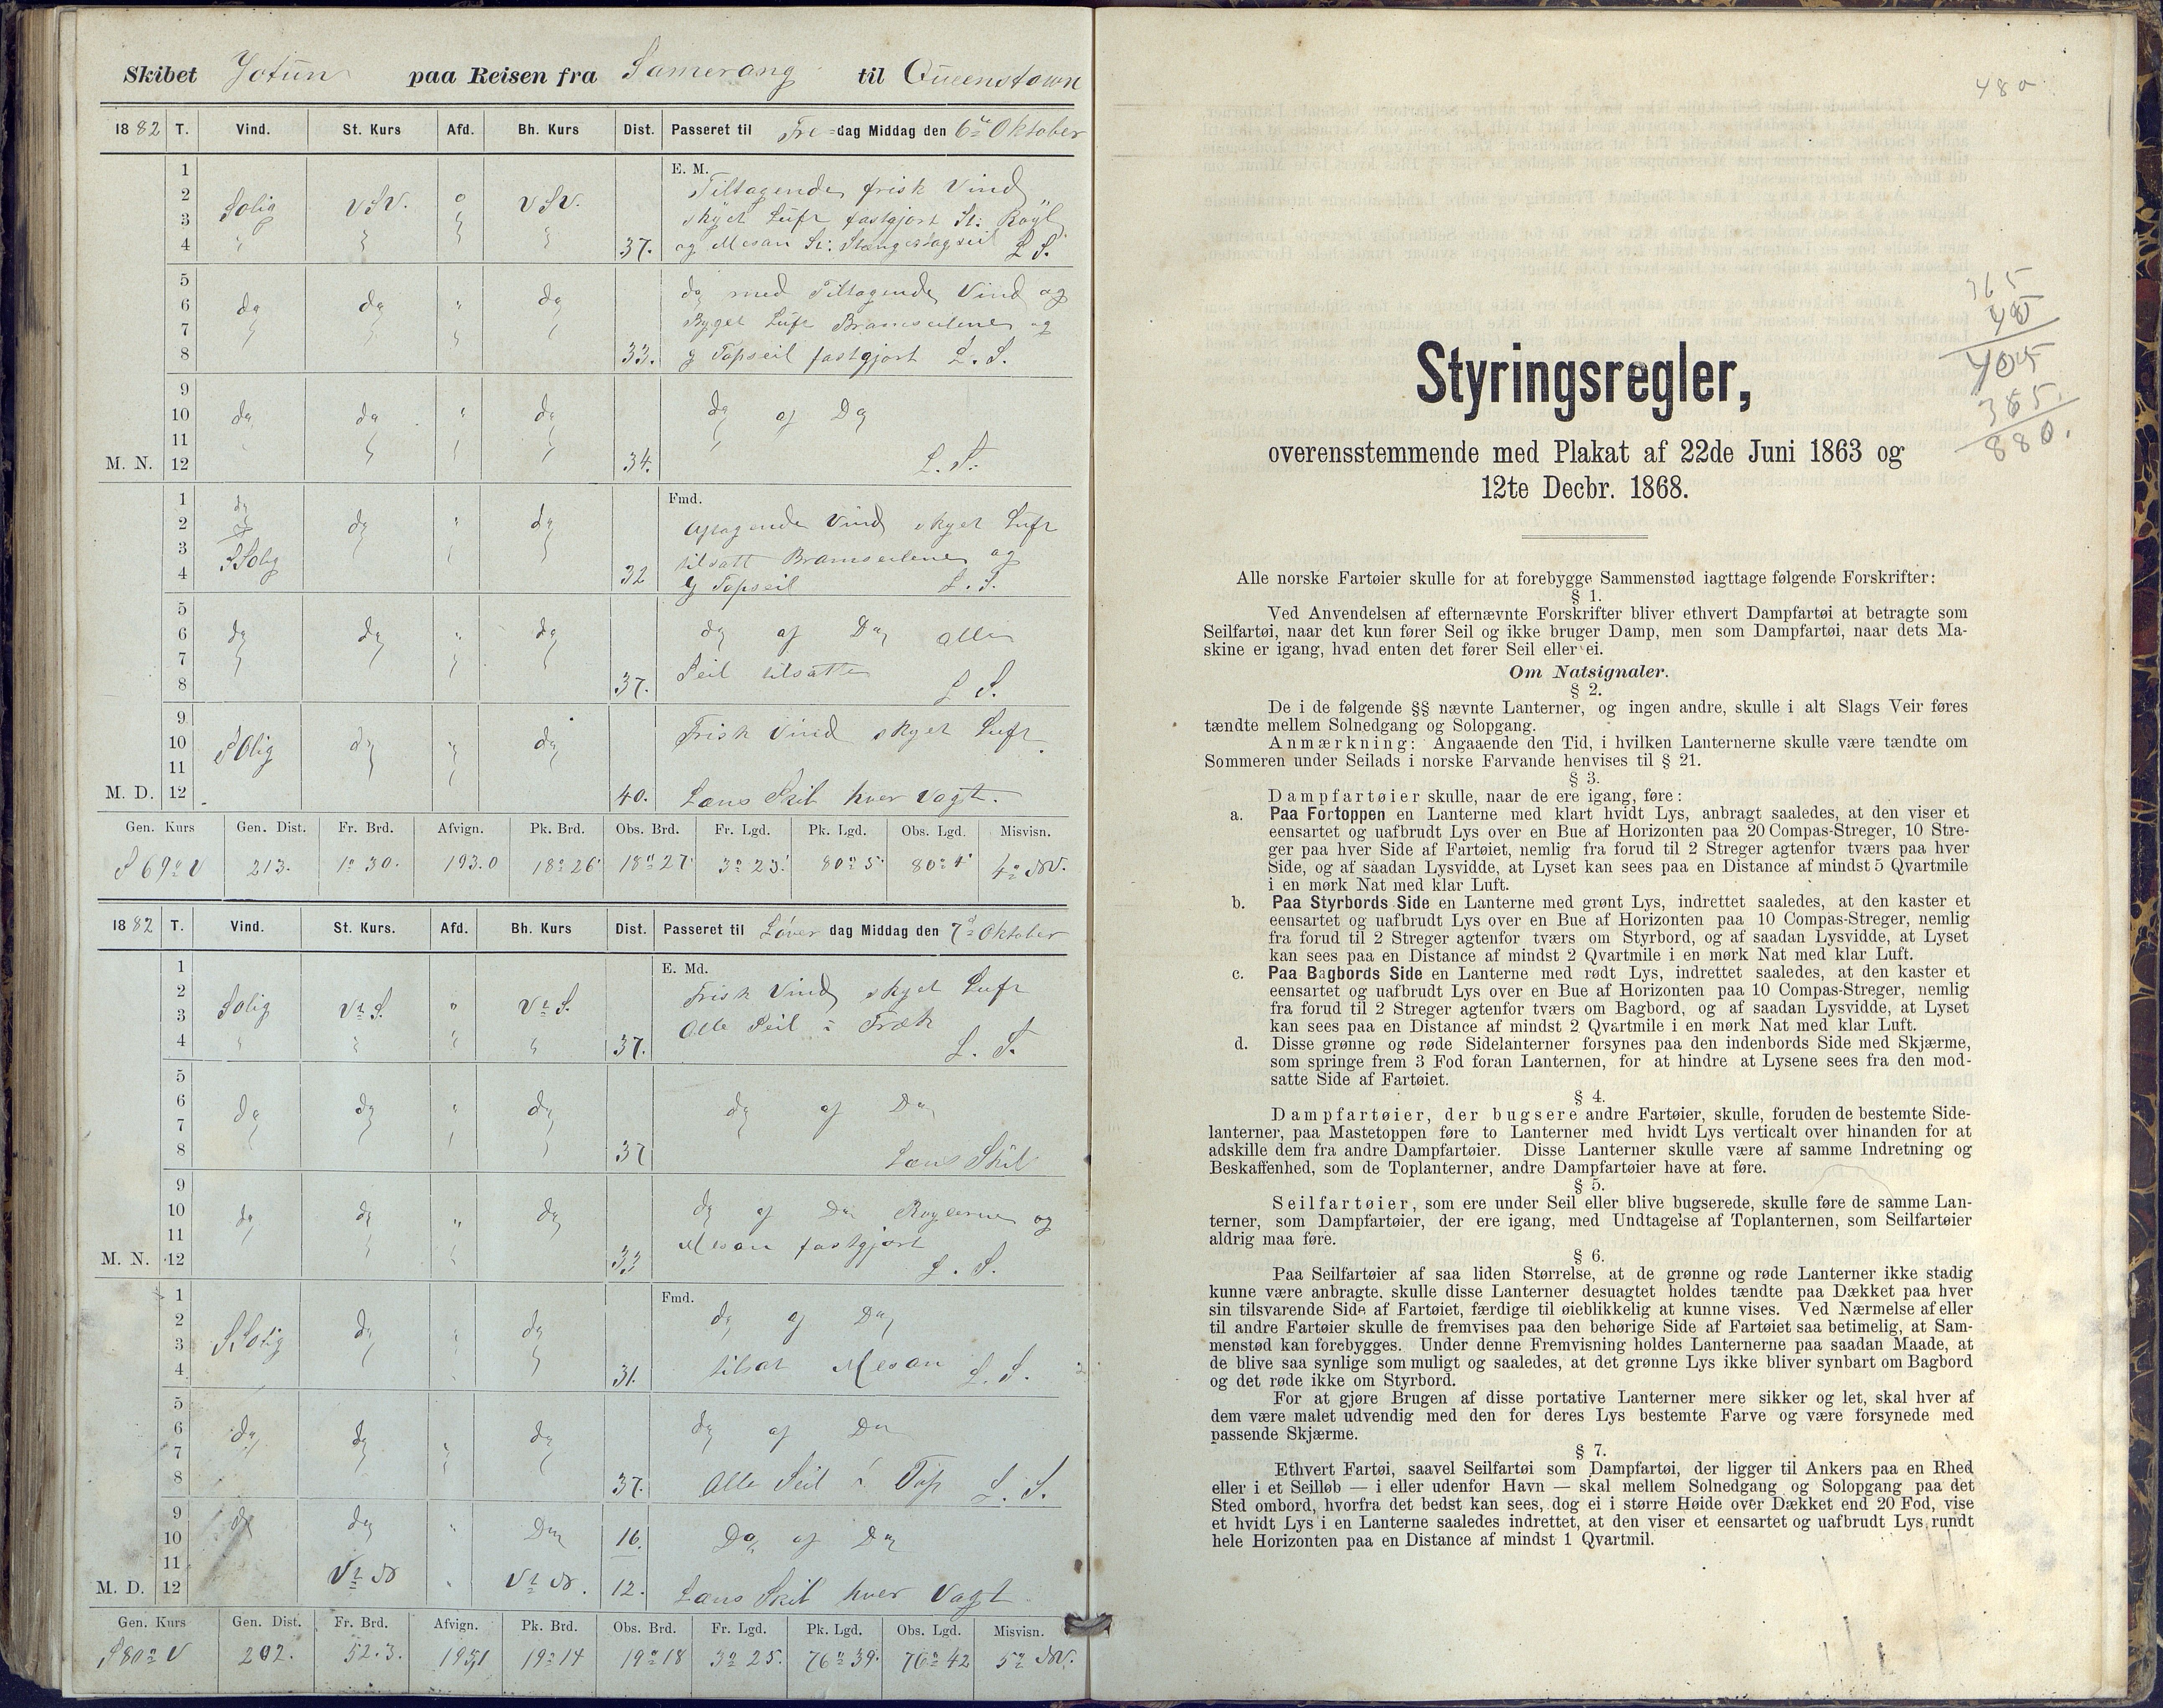 Skibet Jotun paa Reisen fra Samerang til Queenstown
1882 T. Vind. St. Kurs Afd. Bh. Kurs Dist. Passeret til Fre-dag Middag den 6te Oktober
E. M.
1
2
3
4
Solig VSV. 0 VSV. 37.
Tiltagende frisk Vind
skyet Luft fastgjort St: Royl
og Mesan St: Stængestagseil L S.
5
6
7
8
do do " do 33.
do med Tiltagende Vind og
Byget Luft Bramseilene og
g Topseil fastgjort L. S.
9
10
11
M. N. 12
do do " do 34.
do af Do
L. S.
Fmd.
1
2
3
4
do
SSolig do " do 32
Aftagende Vind skyet Luft
tilsatt Bramseilene og
g Topseil L. S.
5
6
7
8
do do " do 37.
do af Do Alle
Seil tilsatte L S.
9
10
11
M. D. 12
SOlig do " do 40.
Frisk Vind skyet Luft.
Læns Skib hver Vagt.
Gen. Kurs Gen. Dist. Fr. Brd. Afvign. Pk. Brd. Obs. Brd. Fr. Lgd. Pk. Lgd. Obs. Lgd. Misvisn.
S 69° V 213. 1° 30. 193.0 18° 26' 18° 27' 3° 23' 80° 5' 80° 4' 4° NV.
1882 T. Vind. St. Kurs. Afd. Bh. Kurs Dist. Passeret til Löver dag Middag den 7de Oktober
E. Md.
1
2
3
4
Solig Vt S. " Vt S. 37.
Frisk Vind skyet Luft
Alle Seil i Træk
L. S.
5
6
7
8
do do " do 37
do af Do
Læns Skib
9
10
11
M. N. 12
do do " do 33
do af Do Roylerne og
Mesan fastgjort
L. S.
Fmd.
1
2
3
4
SSolig do " do 31.
do af Do
tilsat Mesan L. S.
5
6
7
8
do do " do 37.
do af Do
Alle Seil i Top L. S.
9
10
11
M. D. 12
do do " Do 16.
Do af Do
Vt N " Vt N. 12.
Læns Skib hver Vagt
Gen. Kurs Gen. Dist. Fr. Brd. Afvign. Pk. Brd. Obs. Brd. Fr. Lgd. Pk. Lgd. Obs. Lgd. Misvisn.
S 80° V 202. 52.3. 195,1 19° 14 19° 18 3° 25. 76° 39. 76° 42 5° NV.
480
365
40
405
365.
880.
Styringsregler,
overensstemmende med Plakat af 22de Juni 1863 og
12te Decbr. 1868.
Alle norske Fartøier skulle for at forebygge Sammenstød iagttage følgende Forskrifter:
§ 1.
Ved Anvendelsen af efternævnte Forskrifter bliver ethvert Dampfartøi at betragte som
Seilfartøi, naar det kun fører Seil og ikke bruger Damp, men som Dampfartøi, naar dets Ma-
skine er igang, hvad enten det fører Seil eller ei.
Om Natsignaler.
§ 2.
De i de følgende §§ nævnte Lanterner, og ingen andre, skulle i alt Slags Veir føres
tændte mellem Solnedgang og Solopgang.
Anmærkning: Angaaende den Tid, i hvilken Lanternerne skulle være tændte om
Sommeren under Seilads i norske Farvande henvises til § 21.
§ 3.
Dampfartøier skulle, naar de ere igang, føre:
a. Paa Fortoppen en Lanterne med klart hvidt Lys, anbragt saaledes, at den viser et
eensartet og uafbrudt Lys over en Bue af Horizonten paa 20 Compas-Streger, 10 Stre-
ger paa hver Side af Fartøiet, nemlig fra forud til 2 Streger agtenfor tværs paa hver
Side, og af saadan Lysvidde, at Lyset kan sees paa en Distance af mindst 5 Qvartmile
i en mørk Nat med klar Luft.
b. Paa Styrbords Side en Lanterne med grønt Lys, indrettet saaledes, at den kaster et
eensartet og uafbrudt Lys over en Bue af Horizonten paa 10 Compas-Streger, nemlig
fra forud til 2 Streger agtenfor tværs om Styrbord, og af saadan Lysvidde, at Lyset
kan sees paa en Distance af mindst 2 Qvartmile i en mørk Nat med klar Luft.
c. Paa Bagbords Side en Lanterne med rødt Lys, indrettet saaledes, at den kaster et
eensartet og uafbrudt Lys over en Bue af Horizonten paa 10 Compas-Streger, nemlig
fra forud til 2 Streger agtenfor tværs om Bagbord, og af saadan Lysvidde, at Lyset
kan sees paa en Distance af mindst 2 Qvartmile i en mørk Nat med klar Luft.
d. Disse grønne og røde Sidelanterner forsynes paa den indenbords Side med Skjærme,
som springe frem 3 Fod foran Lanternen, for at hindre at Lysene sees fra den mod-
satte Side af Fartøiet.
§ 4.
Dampfartøier, der bugsere andre Fartøier, skulle, foruden de bestemte Side-
lanterner, paa Mastetoppen føre to Lanterner med hvidt Lys verticalt over hinanden for at
adskille dem fra andre Dampfartøier. Disse Lanterner skulle være af samme Indretning og
Beskaffenhed, som de Toplanterner, andre Dampfartøier have at føre.
§ 5.
Seilfartøier, som ere under Seil eller blive bugserede, skulle føre de samme Lan-
terner, som Dampfartøier, der ere igang, med Undtagelse af Toplanternen, som Seilfartøier
aldrig maa føre.
§ 6.
Paa Seilfartøier af saa liden Størrelse, at de grønne og røde Lanterner ikke stadig
kunne være anbragte. skulle disse Lanterner desuagtet holdes tændte paa Dækket paa hver
sin tilsvarende Side af Fartøiet, færdige til øieblikkelig at kunne vises. Ved Nærmelse af eller
til andre Fartøier skulle de fremvises paa den behørige Side af Fartøiet saa betimelig, at Sam-
menstød kan forebygges. Under denne Fremvisning holdes Lanternerne paa saadan Maade, at
de blive saa synlige som muligt og saaledes, at det grønne Lys ikke bliver synbart om Bagbord
og det røde ikke om Styrbord.
For at gjøre Brugen af disse portative Lanterner mere sikker og let, skal hver af
dem være malet udvendig med den for deres Lys bestemte Farve og være forsynede med
passende Skjærme.
§ 7.
Ethvert Fartøi, saavel Seilfartøi som Dampfartøi, der ligger til Ankers paa en Rhed
eller i et Seilløb — i eller udenfor Havn — skal mellem Solnedgang og Solopgang paa det
Sted ombord, hvorfra det bedst kan sees, dog ei i større Høide over Dækket end 20 Fod, vise
et hvidt Lys i en Lanterne saaledes indrettet, at den viser et eensartet og uafbrudt Lys rundt
hele Horizonten paa en Distance af mindst 1 Qvartmil.